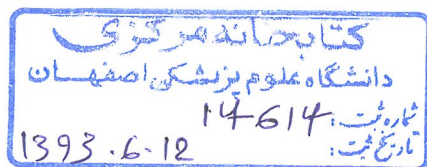 کتابخانه مرکزی
دانشگاه علوم پزشکی اصفهان
شماره ثبت: 14614
تاریخ ثبت: 1393.6.12